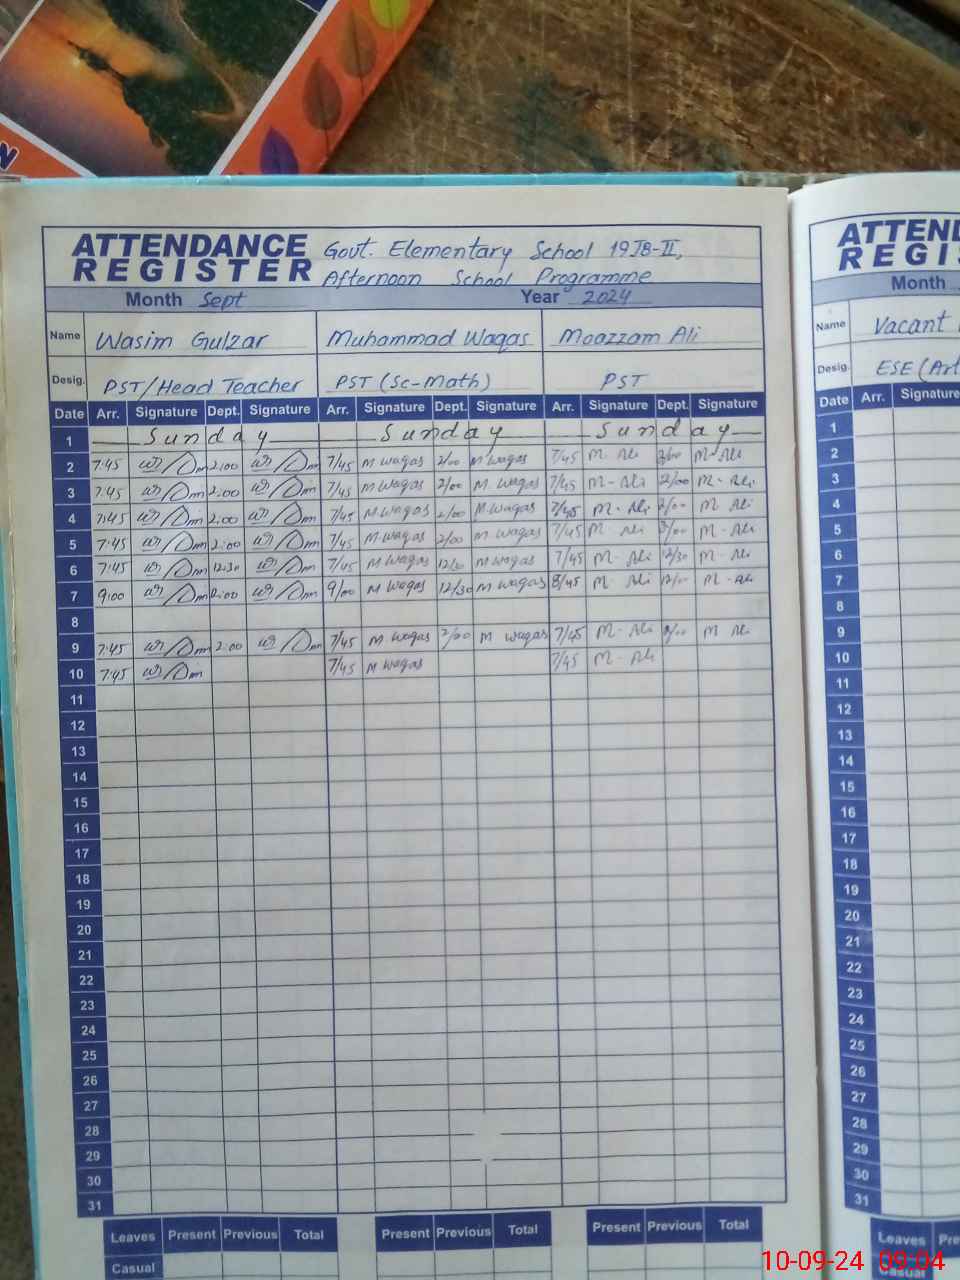 N
ATTENDANCE REGISTER
Govt. Elementary School 19JB-II,
Afternoon School Programme
Month Sept Year 2024
Name Wasim Gulzar Muhammad Waqas Moazzam Ali
Desig. PST/Head Teacher PST (Sc-Math) PST
Date Arr. Signature Dept. Signature Arr. Signature Dept. Signature Arr. Signature Dept. Signature
1 Sunday Sunday Sunday
2 7:45 2:00 7/45 M waqas 2/00 M waqas 7/45 M- Ali 2/00 M- Ali
3 7:45 2:00 7/45 M waqas 2/00 M. waqas 7/45 M- Ali 2/00 M- Ali
4 7:45 2:00 7/45 M waqas 2/00 M waqas 7/45 M- Ali 2/00 M- Ali
5 7:45 2:00 7/45 M waqas 2/00 M waqas 7/45 M- Ali M- Ali
6 7:45 12:30 7/45 M waqas 12/30 M waqas 7/45 M- Ali 12/30 M- Ali
7 9:00 9/00 M waqas 12/30 M waqas 8/45 M- Ali M- Ali
8
9 7:45 2:00 7/45 M waqas 2/00 M waqas 7/45 M- Ali M Ali
10 7:45 7/45 M waqas 7/45 M- Ali
11
12
13
14
15
16
17
18
19
20
21
22
23
24
25
26
27
28
29
30
31
Leaves Present Previous Total Present Previous Total Present Previous Total
Casual
ATTEND
REGIS
Month
Name Vacant
Desig. ESE (Art
Date Arr. Signature
1
2
3
4
5
6
7
8
9
10
11
12
13
14
15
16
17
18
19
20
21
22
23
24
25
26
27
28
29
30
31
Leaves Pre
Casual
10-09-24 09:04